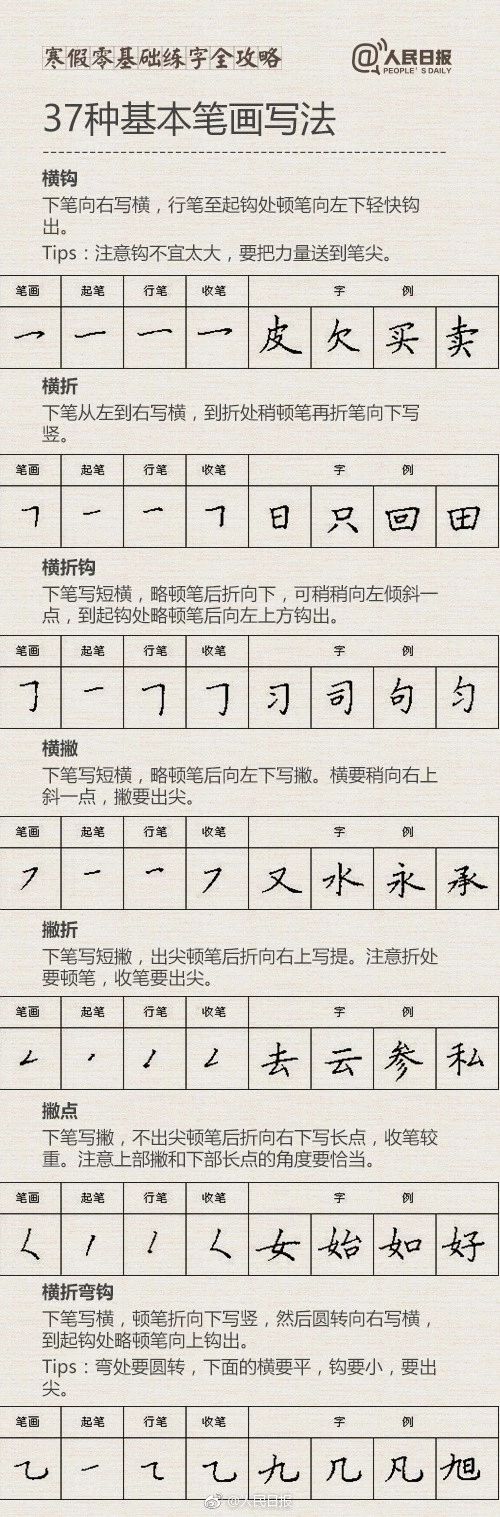 寒假零基础练字全攻略
@人民日报
PEOPLE'S DAILY
37种基本笔画写法
横钩
下笔向右写横，行笔至起钩处顿笔向左下轻快钩
出。
Tips：注意钩不宜太大，要把力量送到笔尖。
笔画 起笔 行笔 收笔 字 例
乛 一 一 乛 皮 欠 买 卖
横折
下笔从左到右写横，到折处稍顿笔再折笔向下写
竖。
笔画 起笔 行笔 收笔 字 例
𠃍 一 一 𠃍 日 只 回 田
横折钩
下笔写短横，略顿笔后折向下，可稍稍向左倾斜一
点，到起钩处略顿笔后向左上方钩出。
笔画 起笔 行笔 收笔 字 例
𠃌 一 𠃍 𠃌 习 司 句 匀
横撇
下笔写短横，略顿笔后向左下写撇。横要稍向右上
斜一点，撇要出尖。
笔画 起笔 行笔 收笔 字 例
㇇ 一 一 ㇇ 又 水 永 承
撇折
下笔写短撇，出尖顿笔后折向右上写提。注意折处
要顿笔，收笔要出尖。
笔画 起笔 行笔 收笔 字 例
𠃋 丿 丿 𠃋 去 云 参 私
撇点
下笔写撇，不出尖顿笔后折向右下写长点，收笔较
重。注意上部撇和下部长点的角度要恰当。
笔画 起笔 行笔 收笔 字 例
𡿨 丿 丿 𡿨 女 始 如 好
横折弯钩
下笔写横，顿笔折向下写竖，然后圆转向右写横，
到起钩处略顿笔向上钩出。
Tips：弯处要圆转，下面的横要平，钩要小，要出
尖。
笔画 起笔 行笔 收笔 字 例
乙 一 ㇍ 乙 九 几 凡 旭
@人民日报